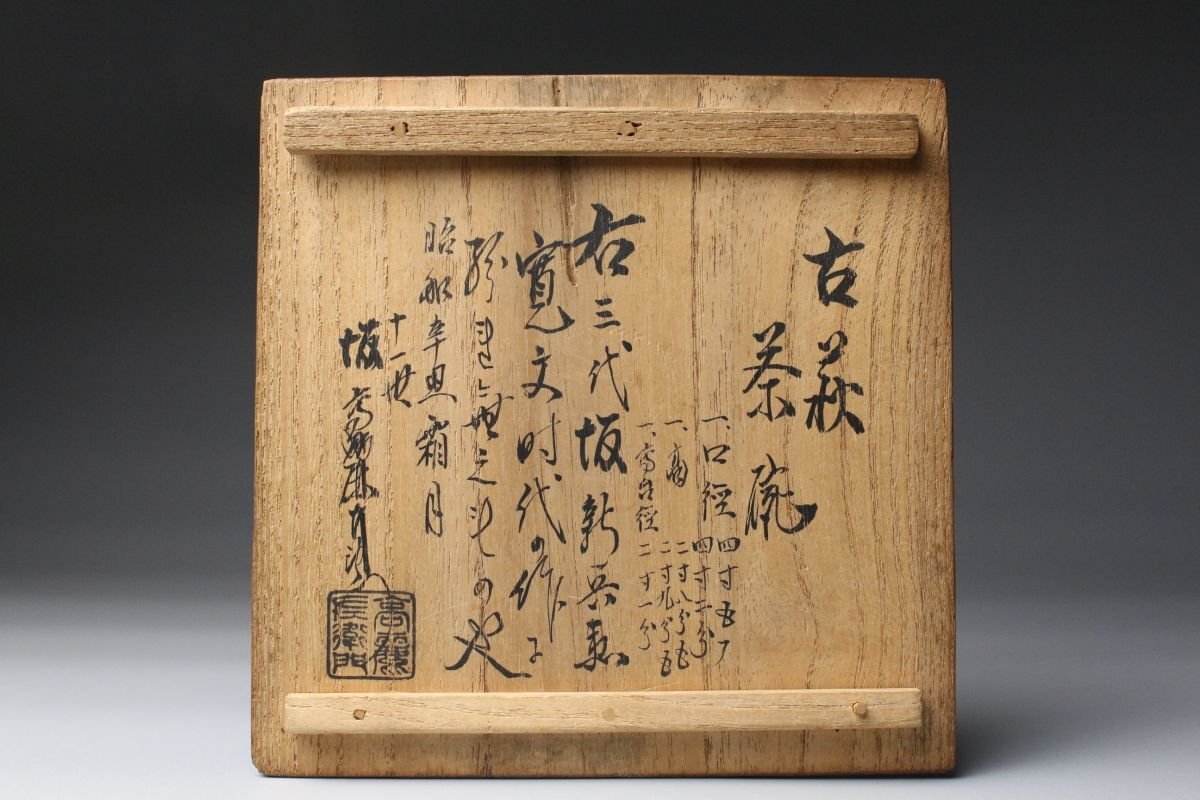 古萩
茶碗
一、口徑 四寸五分
四寸二分
一、高 二寸八分五
二寸九分五
一、高台徑 二寸一分
右三代坂新兵衛
寛文時代の作に
紛れ無之もの也
昭和辛丑霜月
十一世
坂高麗左衛門
高麗左衛門